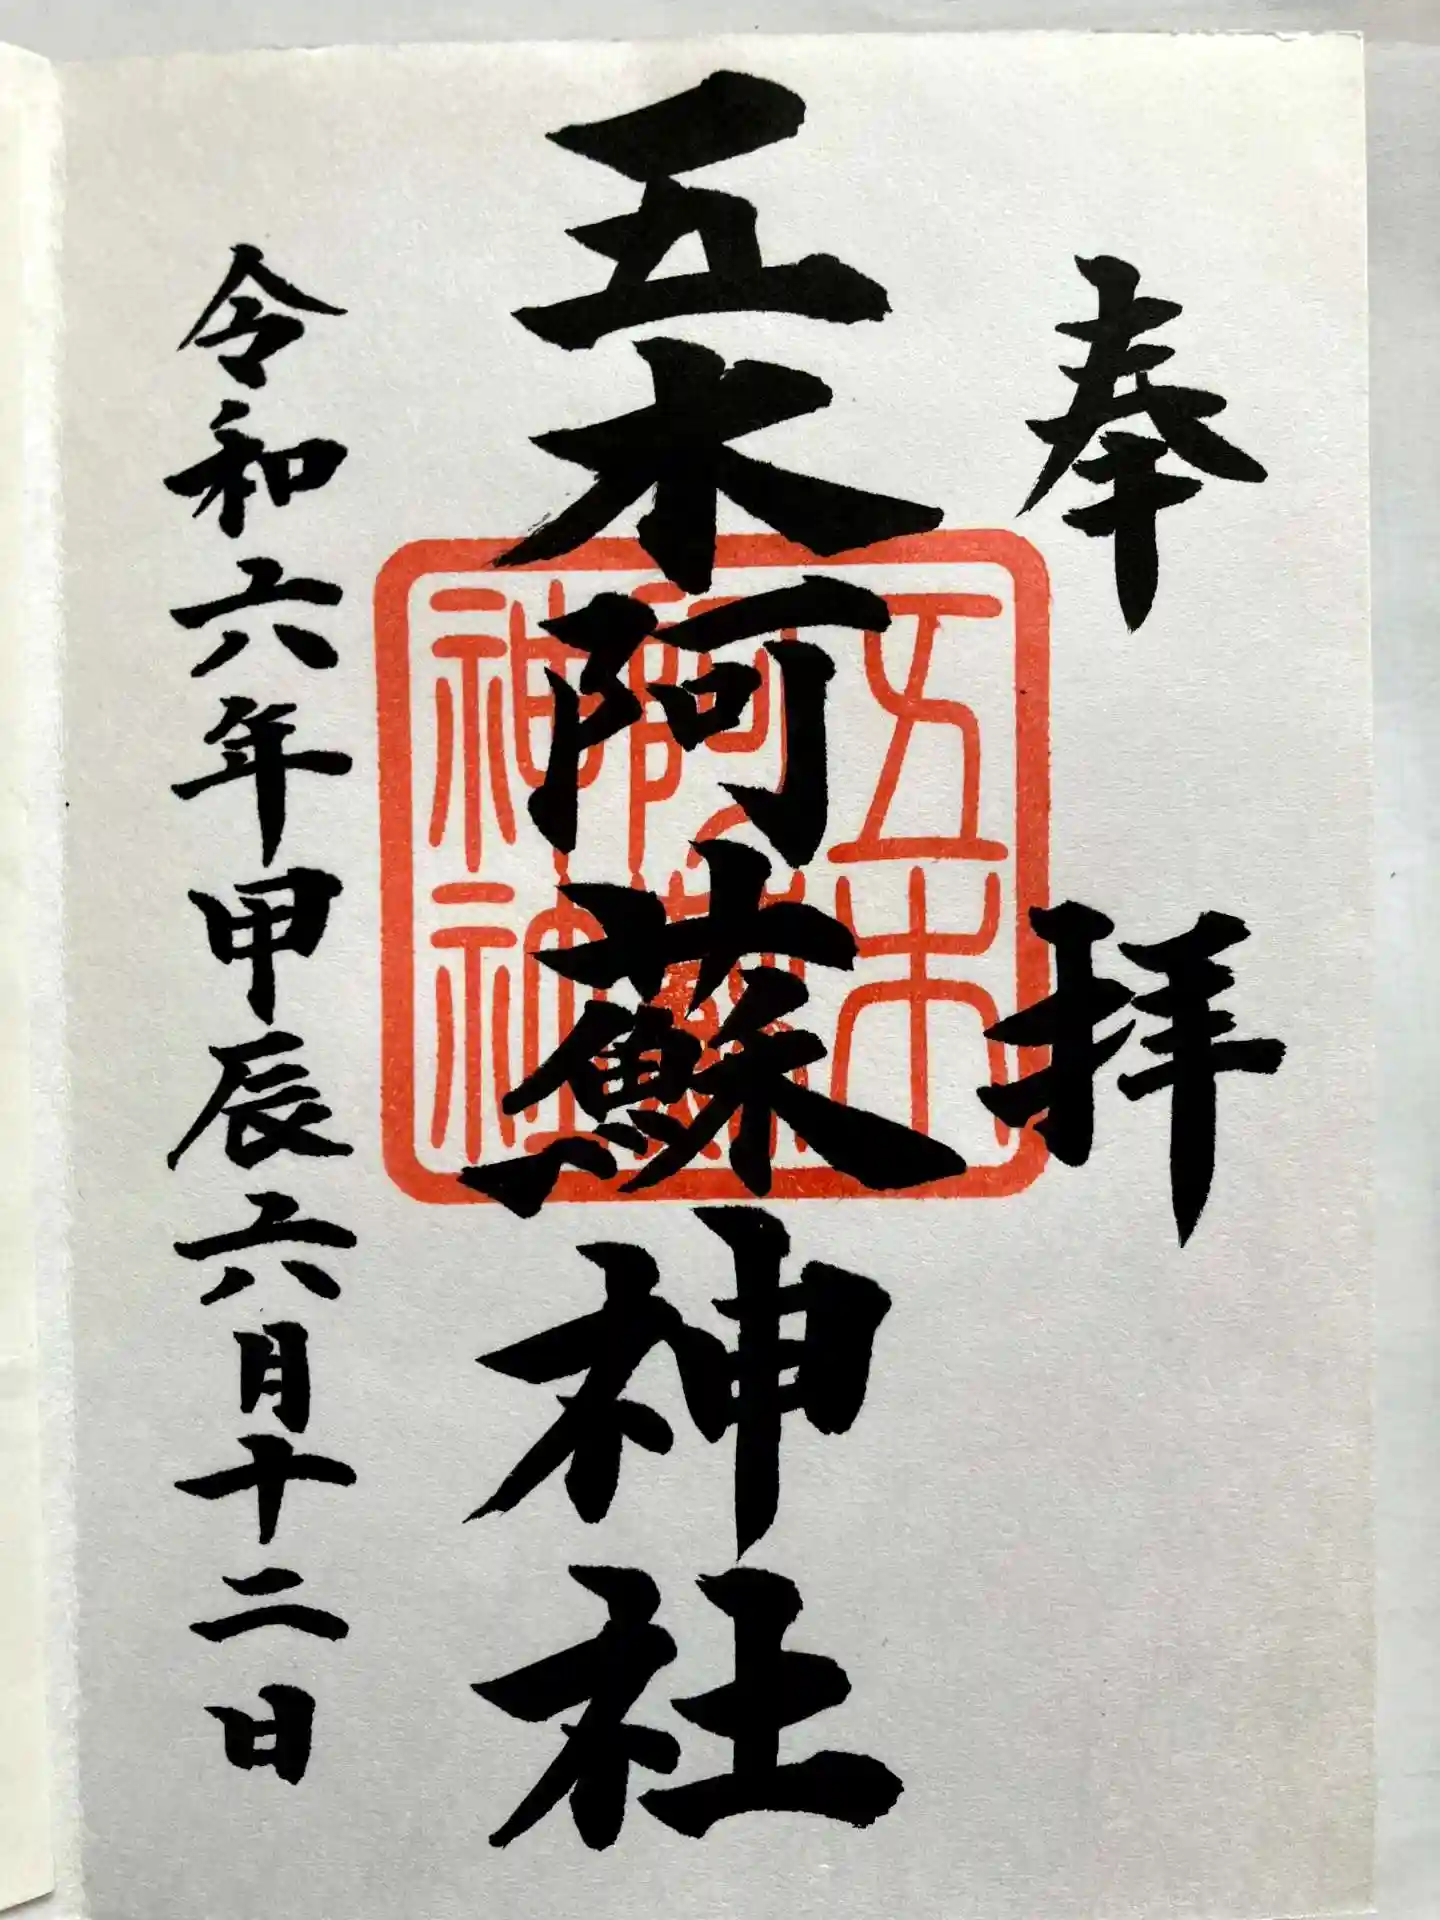 奉拝
五木阿蘇神社
五木
阿蘇
神社
令和六年甲辰六月十二日